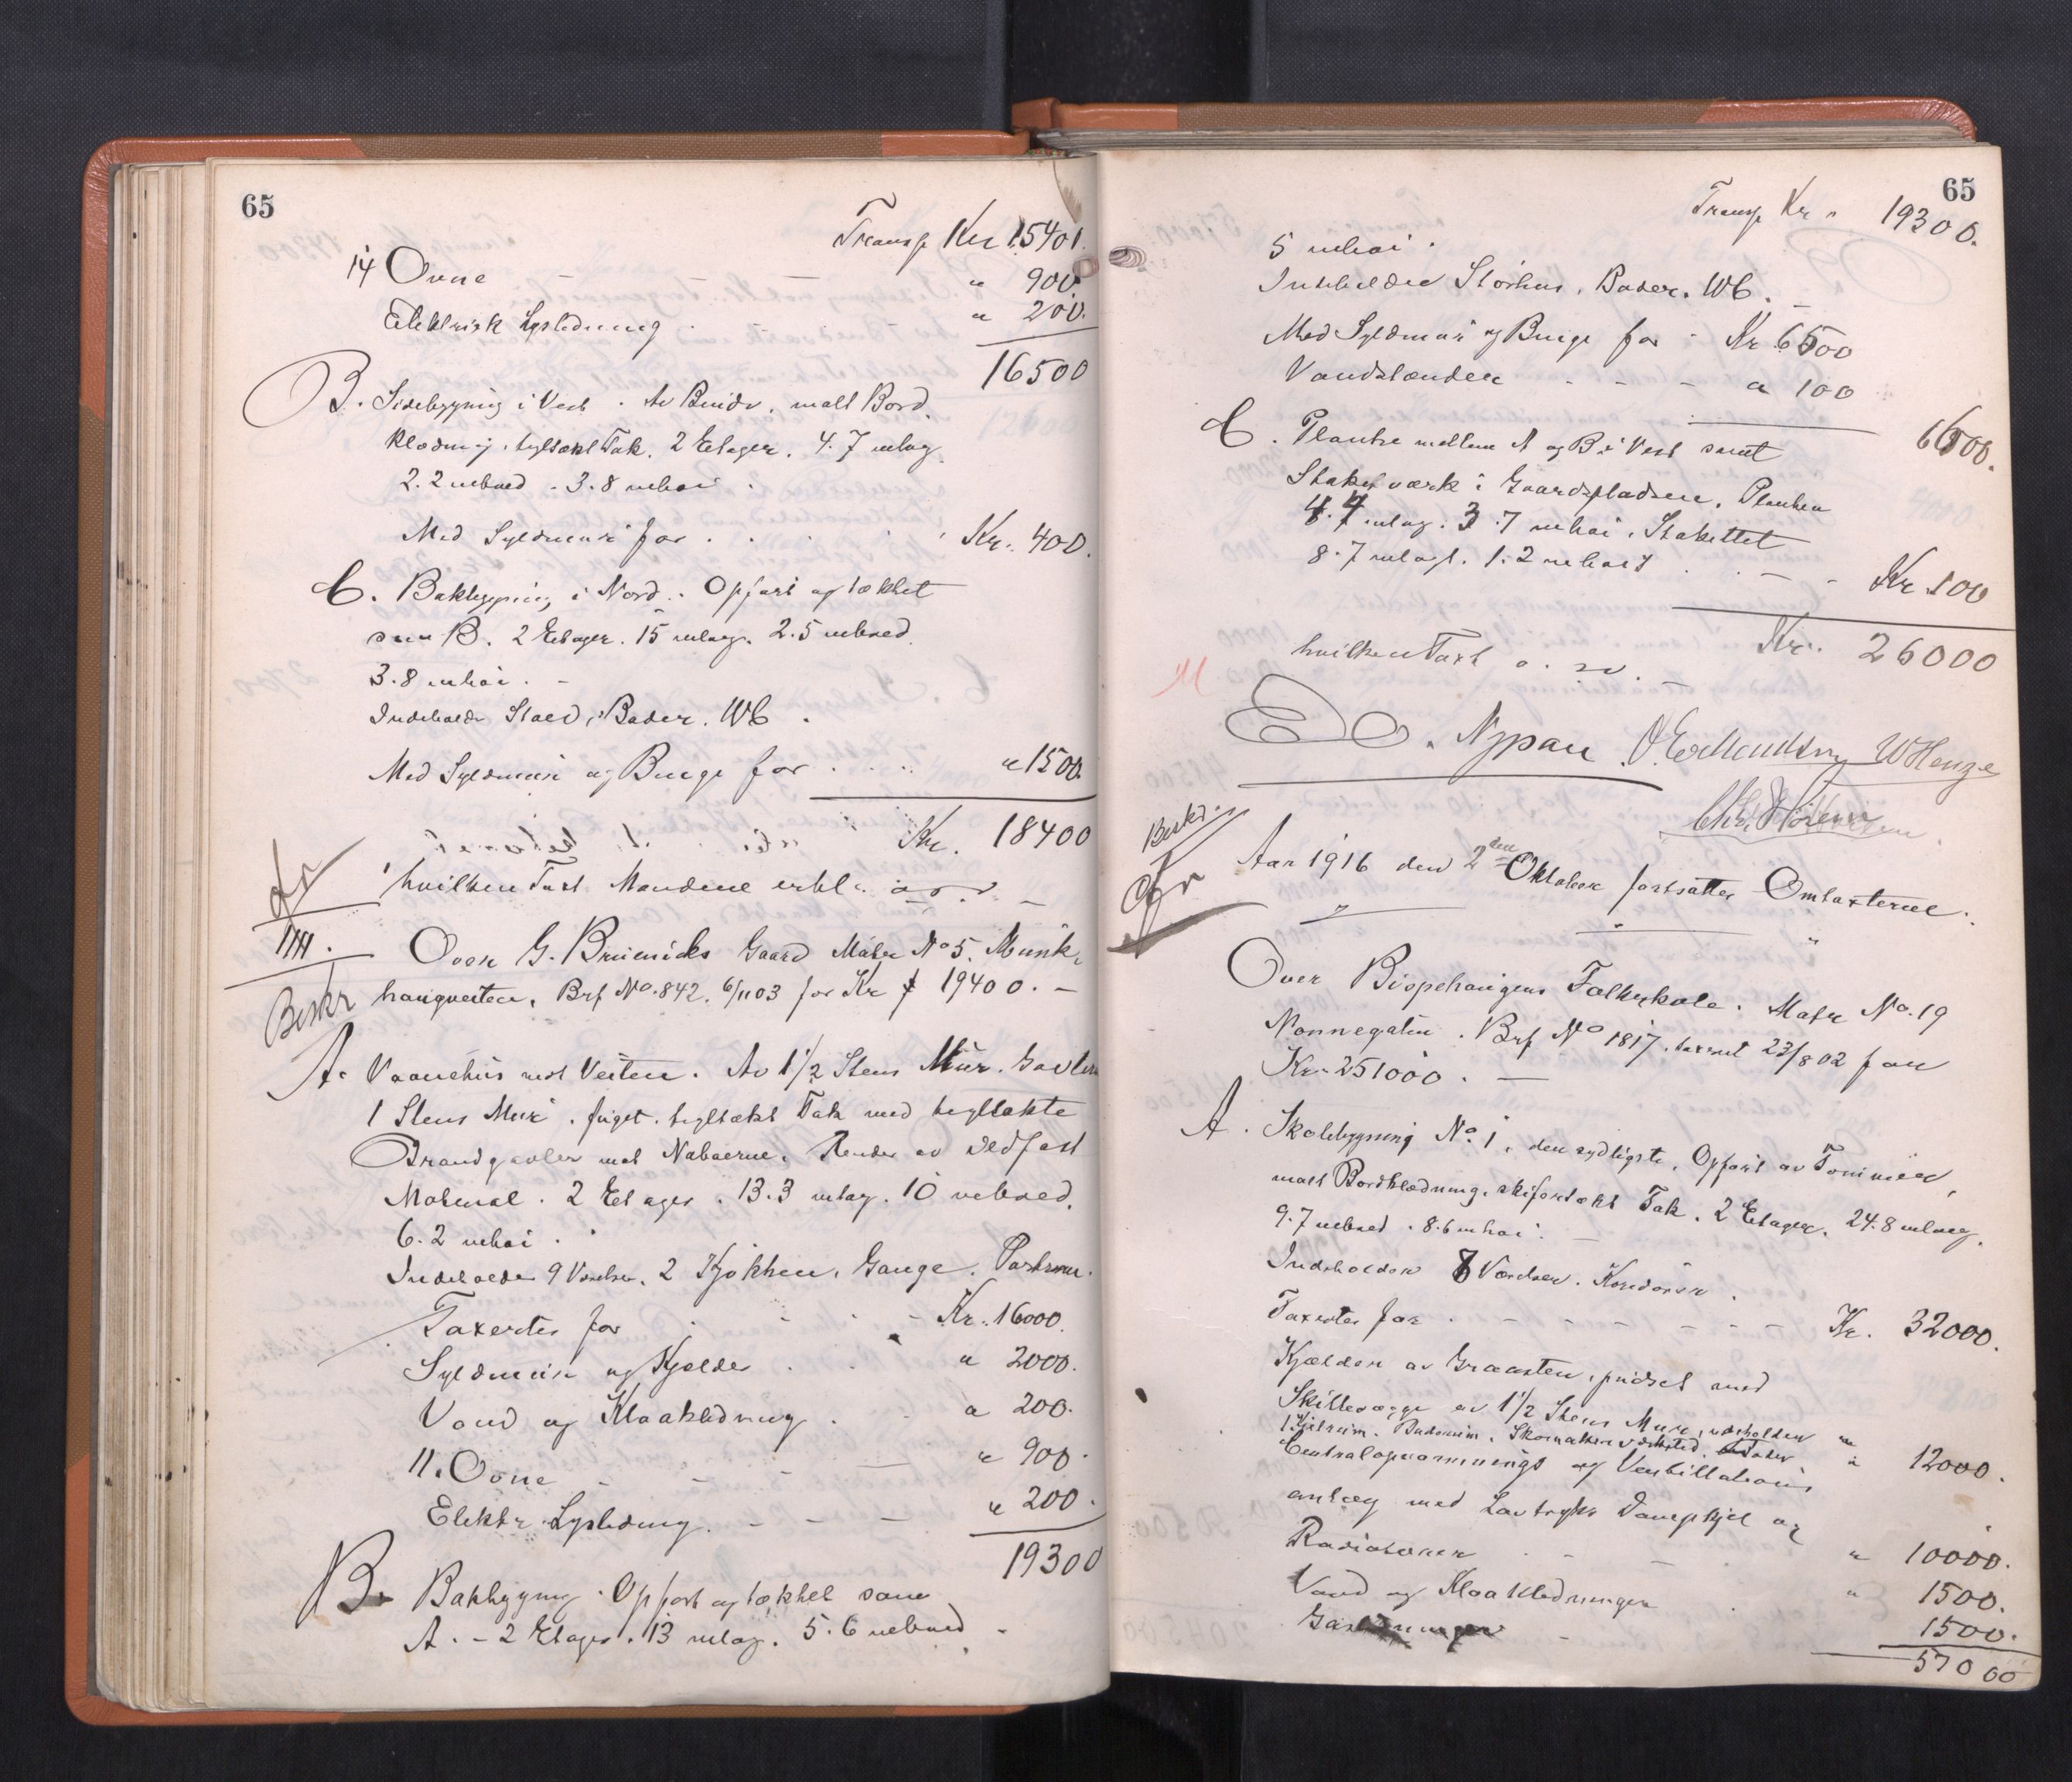 65
Transp Kr 15401.
14 Ovne - - - " 900
Elektrisk Lysledning . - " 200.
16500
B. Sidebygning i Vest . Av Bindv. malt Bord.
klædning, teglækt Tak. 2 Etager. 4.7 m lag
2.2 m bred . 3.8 m høi .
Med Syldmur for . . . . Kr. 400.
C. Bakbygning i Nord . Opført og tækket
som B. 2 Etager. 15 m lag. 2.5 m bred.
3.8 m høi . -
Indeholder Stald, Boder. WC .
Med Syldmur og Burge for . . . . " 1500.
Kr. 18400
hvilken Taxt Mændene erkl.
Over G. Bruuiks Gaard Matr No 5. Munk-
haugveiten, Brf No. 842. 6/11 03 for Kr 19400. -
Beskr
A. Vaanehus mot Veiten. Av 1 1/2 Stens Mur. Gavlen
1 Stens Mur . fuget . teglækt Tak med teglækte
Brandgavler mot Naboerne. Render av ildfast
Material . 2 Etager . 13.3 m lag. 10 m bred.
6.2 m høi .
Indeholder 9 Værelser. 2 Kjøkken. Gange.
Taxertes for . - . - Kr. 16000.
Syldmur og Kjelder . . " 2000.
Vand og Kloakledning . . " 200.
11. Ovne - - - - " 900.
Elektr Lysledning. - - - " 200.
19300
B. Bakbygning . Opført og tækket som
A. - 2 Etager . 13 m lag. 5.6 m bred -
65
Transp Kr " 19300.
5 m høi .
Indeholder Storhus. Boder. WC.
Med Syldmur og Burge for - Kr 6500
Vandstænder - - - a 100
6600.
C. Planke mellem A og B i Vest samt
Staketværk i Gaardspladsen. Planken
4.4 m lag. 3.7 m høi. Stakettet
8.7 m lagt. 1.2 m høit . . - - Kr. 100
Kr. 26000
hvilken Taxt o. s. v.
O. Nypan O. Erlandsen W Henze
Beskr.
Aar 1916 den 2den Oktober fortsattes Omtaxterne.
Over Bispehaugens Folkeskole. Matr No. 19
Nonnegaten . Brf No 1817. taxeret 23/8 02 for
Kr. 251000 . -
A . Skolebygning No. 1, den sydligste. Opført av Tømmer,
malt Bordklædning. skifertækt Tak. 2 Etager. 24.8 m lag.
9.7 m bred . 8.6 m høi . -
Indeholder 8 Værelser. Korridorer .
Taxertes for . - - - - - - Kr. 32000.
Kjælder av Graasten, pudset med
Skillevægge av 1 1/2 Stens Mur, indeholder
1 Fyrrum. Baderum. Skomakerværksted. Boder " 12000.
Centralopvarmnings og Ventillations
anlæg med Lavtryks Dampkjel og
Radiatorer . - - " 10000.
Vand og Kloakledninger . " 1500.
Gasledninger - 1500.
57000